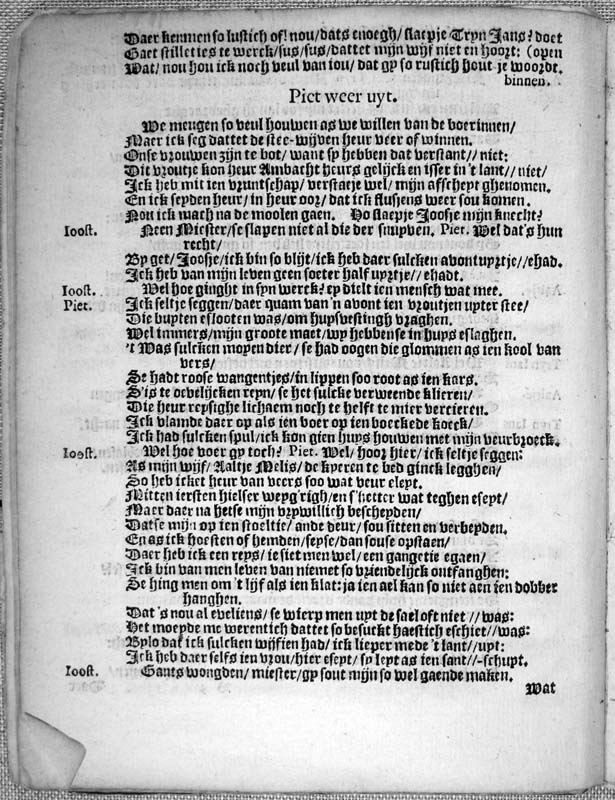 Daer kennen so lustich of! nou/dats enoegh/ slaepje Tryn Jans? doet
Gaet stilletjes te werck/sus/sus/dattet mijn wijf niet en hoort: (open
Wat/ nou hou ick noch veul van iou/ dat gy so rustich hout je woordt.
binnen.
Piet weer uyt.
We meugen so veul houwen as we willen van de boerinnen/
Maer ick seg dattet de stee-wijven heur veer of winnen.
Onse vrouwen zijn te bot/ want sy hebben dat verstant// niet:
Dit vroutje kon heur Ambacht heurs gelijck en isser in 't lant// niet/
Ick heb mit ien vruntschap/ verstaeje wel/ mijn afscheyt ghenomen.
En ick seyden heur/ in heur oor/ dat ick flusjens weer sou komen.
Nou ick mach na de moolen gaen. Ho slaepje Joosje mijn knecht?
Ioost. Neen Miester/se slapen niet al die der snuyven. Piet. Wel dat's hun
recht/
By get/ Joosje/ick bin so blijt/ick heb daer sulcken avontuyrtje//ehad.
Ick heb van mijn leven geen soeter half uyrtje// ehadt.
Ioost. Wel hoe ginght in syn werck? ey dielt ien mensch wat mee.
Piet. Ick seltje seggen/ daer quam van'n avont ien vroutjen uyter stee/
Die buyten eslooten was/om huysvestingh vraghen.
Wel immers/mijn groote maet/wy hebbense in huys eslaghen.
't Was sulcken moyen dier/ se had oogen die glommen as ien kool van
vers/
Se hadt roose wangentjes/in lippen soo root as ien kars.
S'is te oevelijcken reyn/ se het sulcke verweende klieren/
Die heur reysighe lichaem noch te helft te mier vercieren.
Ick vlamde daer op als ien voer op ien boeckede koeck/
Ick had sulcken spul/ick kon gien huys houwen met mijn veurbroeck.
Ioost. Wel hoe voer gy toch? Piet. Wel/ hoor hier/ ick seltje seggen:
As mijn wijf/ Aaltje Melis/ de kyeren te bed ginck legghen/
So heb icket heur van veers soo wat veur eleyt.
Mitten iersten hielser weyg'righ/en s'hetter wat teghen eseyt/
Maer daer na hetse mijn vrywillich bescheyden/
Datse mijn op ien stoeltie/ ande deur/ sou sitten en verbeyden.
En as ick hoesten of hemden/seyse/dan souse opstaen/
Daer heb ick een reys/ ie siet men wel/ een gangetie egaen/
Ick bin van men leven van niemet so vriendelijck ontfanghen:
Se hing men om 't lijf als ien klat: ja ien ael kan so niet aen ien dobber
hanghen.
Dat 's nou al eveliens/ se wierp men uyt de sael oft niet // was:
Het moeyde me werentich dattet so besuckt haestich eschiet//was:
Bylo dat ick sulcken wijfien had/ ick lieper mede 't lant//uyt:
Ick heb daer selfs ien vrou/hier eseyt/ sy leyt as ien sant//-schuyt.
Ioost. Gants wongden/ miester/gy sout mijn so wel gaende maken.
Wat